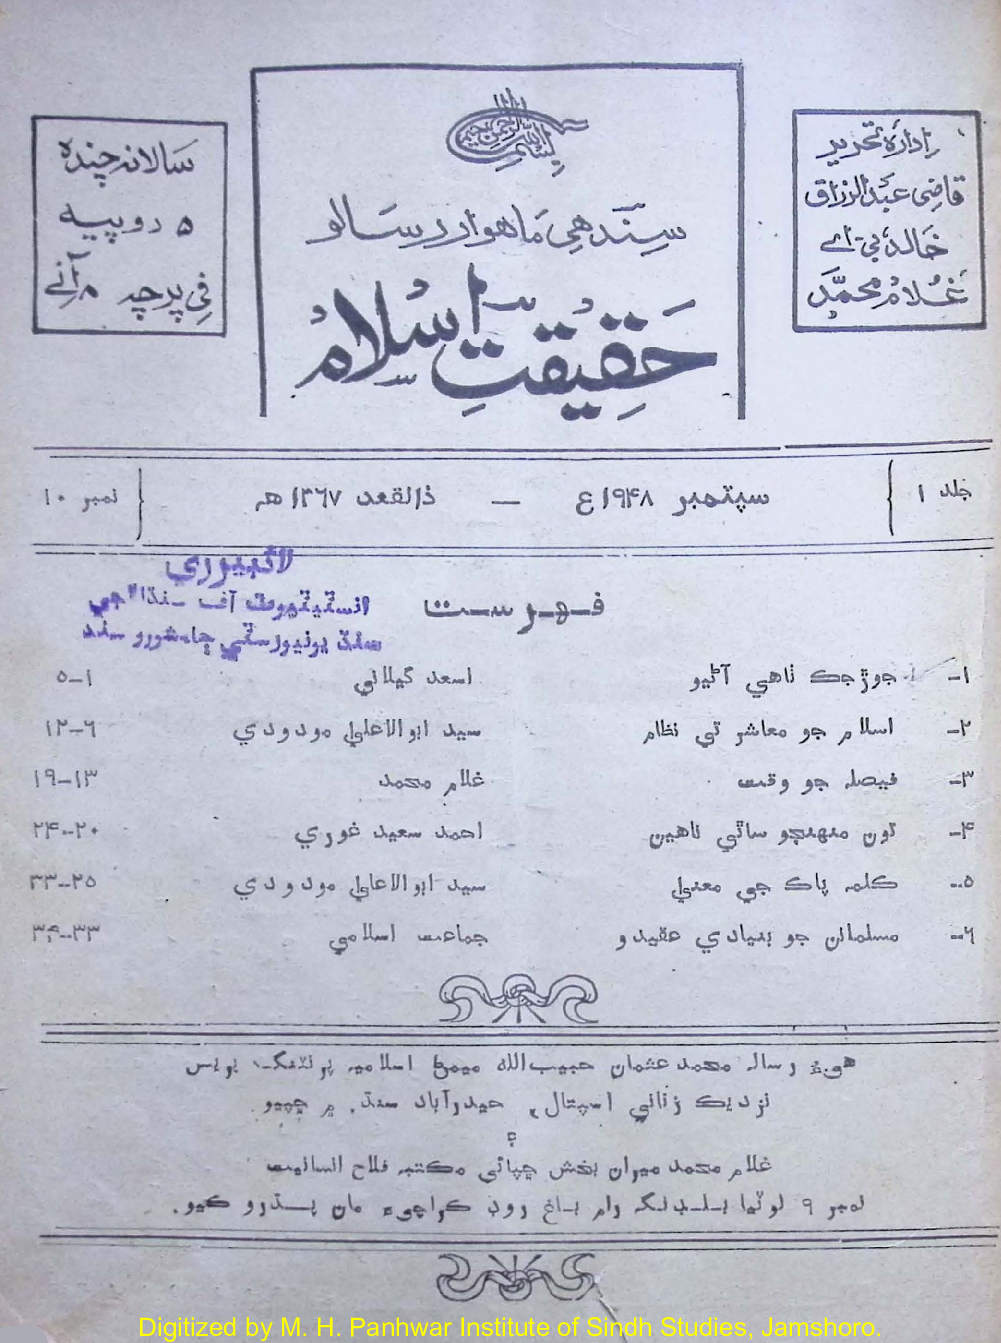 بسم الله الرحمن الرحيم
سِنڌهي مَاهوار رسَالو
حَقِيْقتِ اِسْلامُ
اِدارهٔ تحرير
قاضِي عبَدالرزاق
خَالدؔ بي-اي
غُلامُ محمّدَ
سَالانہ چنده
۵ روپييه
في پرچہ ۸ آنے
جلد ۱
سپٽمبر ۱۹۴۸ع — ذالقعد ۱۳٦۷هه
نمبر ۱۰
لائبريري
انسٽيٽيوٽ آف سنڌالاجي
سنڌ يونيورسٽي ڄامشورو سنڌ
فهرست
۱- جوڙجڪ ناهي آڻيو اسعد گيلاني ۱-۵
۲- اسلام جو معاشرتي نظام سيد ابوالاعليٰ مودودي ٦-۱۲
۳- فيصلہ جو وقت غلام محمد ۱۳-۱۹
۴- تون منهنجو ساٿي ناهين احمد سعيد غوري ۲۰-۲۴
۵- ڪلمہ پاڪ جي معنيٰ سيد ابوالاعليٰ مودودي ۲۵-۳۳
٦- مسلمانن جو بنيادي عقيدو جماعت اسلامي ۳۳-۳۴
هيءُ رسالہ محمد عثمان حبيب الله ميمڻ اسلاميہ پرنٽنگ پريس
نزديڪ زناني اسپتال، حيدرآباد سنڌ، ۾ ڇپيو
۽
غلام محمد ميران بخش ڇپائي مڪتبہ فلاح انسانيت
نمبر ۹ لوٽيا بلڊنگ رام باغ روڊ ڪراچيءَ مان پڌرو ڪيو.
Digitized by M. H. Panhwar Institute of Sindh Studies, Jamshoro.